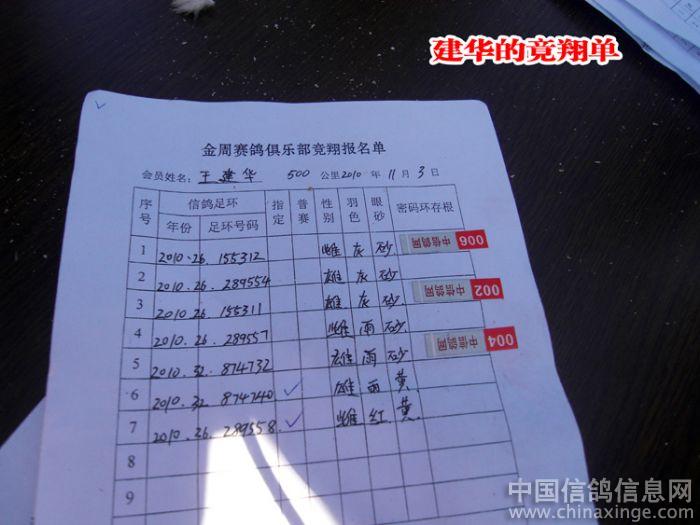 建华的竟翔单
金周赛鸽俱乐部竞翔报名单
会员姓名: 王建华 500 公里2010 年 11 月 3 日
序号 信鸽足环 指定 普赛 性别 羽色 眼砂 密码环存根
年份 足环号码
1 2010.26. 155312 雌 灰 砂 中信鸽网 006
2 2010.26. 289554 雄 灰 砂
3 2010.26. 155311 雄 灰 砂 中信鸽网 002
4 2010.26. 289557 雌 雨 砂
5 2010.32. 874732 雄 雨 砂 中信鸽网 004
6 2010.32. 874740 ✓ 雄 雨 黄
7 2010.26. 289558. ✓ 雌 红 黄
8
9
中国信鸽信息网
www.chinaxinge.com